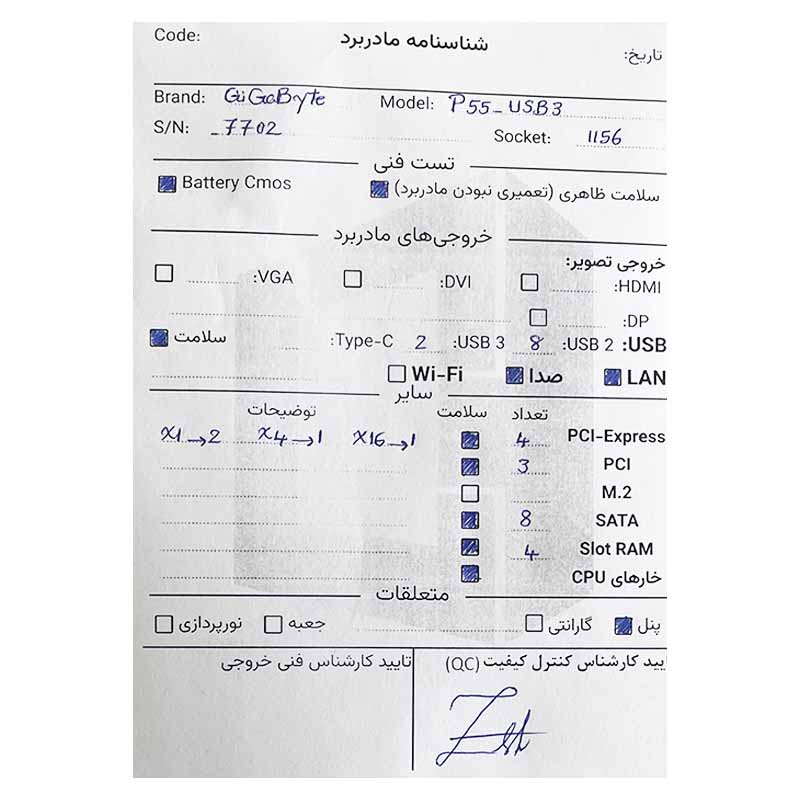 Code: شناسنامه مادربرد تاریخ:
Brand: GiGaByte Model: P55_USB3
S/N: _7702 Socket: 1156
تست فنی
سلامت ظاهری (تعمیری نبودن مادربرد) Battery Cmos
خروجی‌های مادربرد
خروجی تصویر:
HDMI: DVI: VGA:
DP:
USB: USB 2: 8 USB 3: 2 Type-C: سلامت
LAN صدا Wi-Fi
سایر
تعداد سلامت توضیحات
PCI-Express 4 X16→1 X4→1 X1→2
PCI 3
M.2
SATA 8
Slot RAM 4
خارهای CPU
متعلقات
پنل گارانتی جعبه نورپردازی
یید کارشناس کنترل کیفیت (QC) تایید کارشناس فنی خروجی